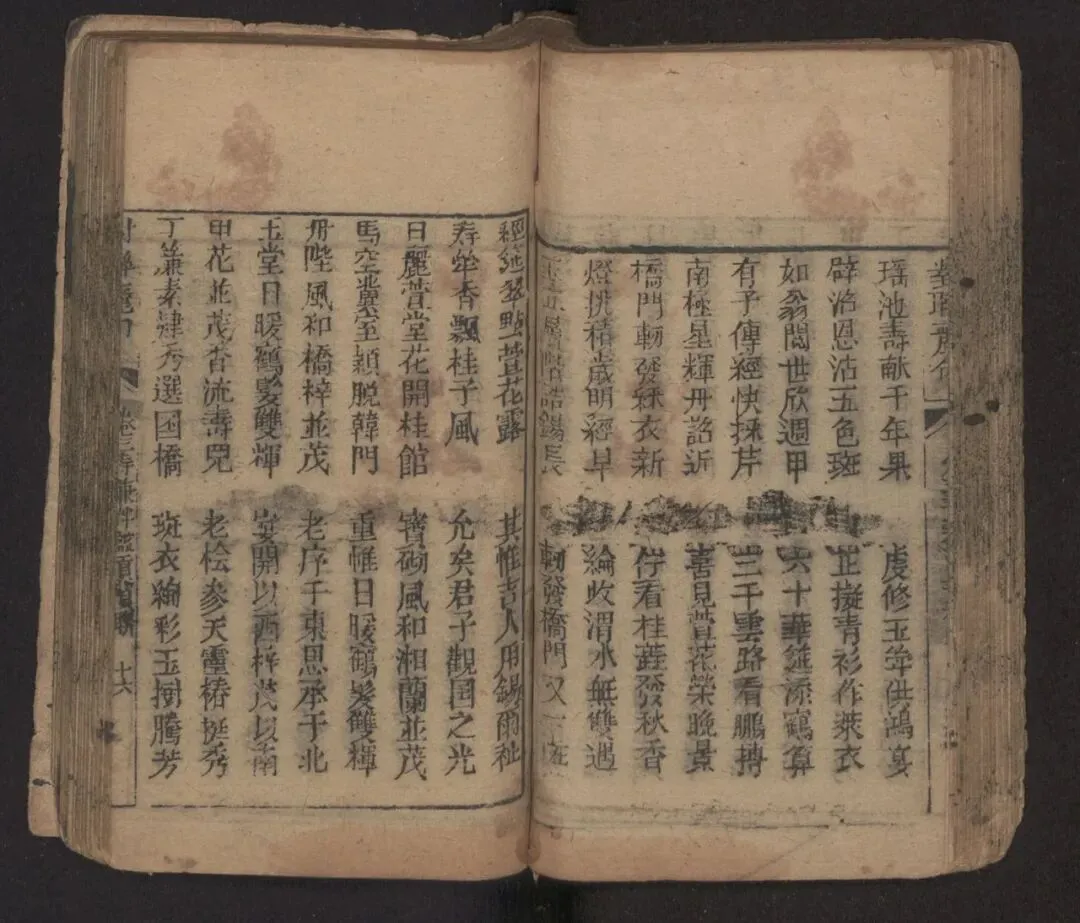 瑤池壽献千年果 虔修玉斝供鴻宴
辟沼恩沾五色斑 正擬青衫作萊衣
如翁閱世欣週甲 六十華筵添鶴算
有子傳經快採芹 三千雲路看鵬摶
南極星輝丹詔近 喜見萱花榮晚景
橋門軔發綵衣新 佇看桂蕋發秋香
燈挑積歲明經早 綸收渭水無雙遇
誥錫長 軔發橋門又一
經筵翠點萱花露 其惟吉人用錫爾祉
寿斝香飄桂子風 允矣君子觀国之光
日麗萱堂花開桂館 寶砌風和湘蘭並茂
馬空冀至頴脫韓門 重帷日暖鶴髮雙輝
丹陛風和橋梓並茂 老序于東思承于北
玉堂日暖鶴髮雙輝 宴開以西梓茂以南
甲花並茂香流壽兕 老桧参天靈椿挺秀
丁蒹素肄秀選国橋 斑衣絢彩玉樹騰芳
卷三壽兼 監貢賀聯 十六